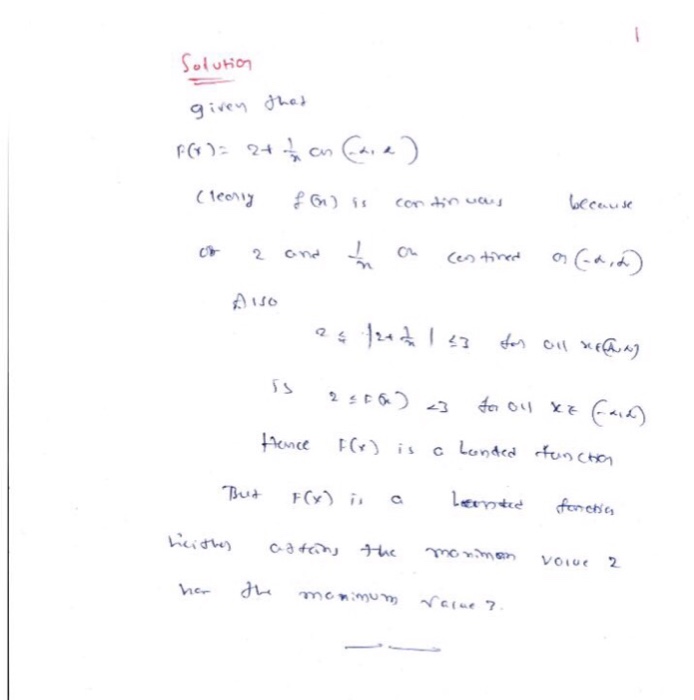 1
Solution
given that
F(x) = 2+ 1/x on (-∞, ∞)
Clearly f(x) is continuous because
of 2 and 1/x on on (-∞, ∞)
Also
2 ≤ |2+ 1/x| ≤3 for all x∈
is 2 ≤ F(x) <3 for all x ∈ (-∞, ∞)
Hence F(x) is a bounded function
But F(x) is a function
neither attains the value 2
nor the maximum value 3.